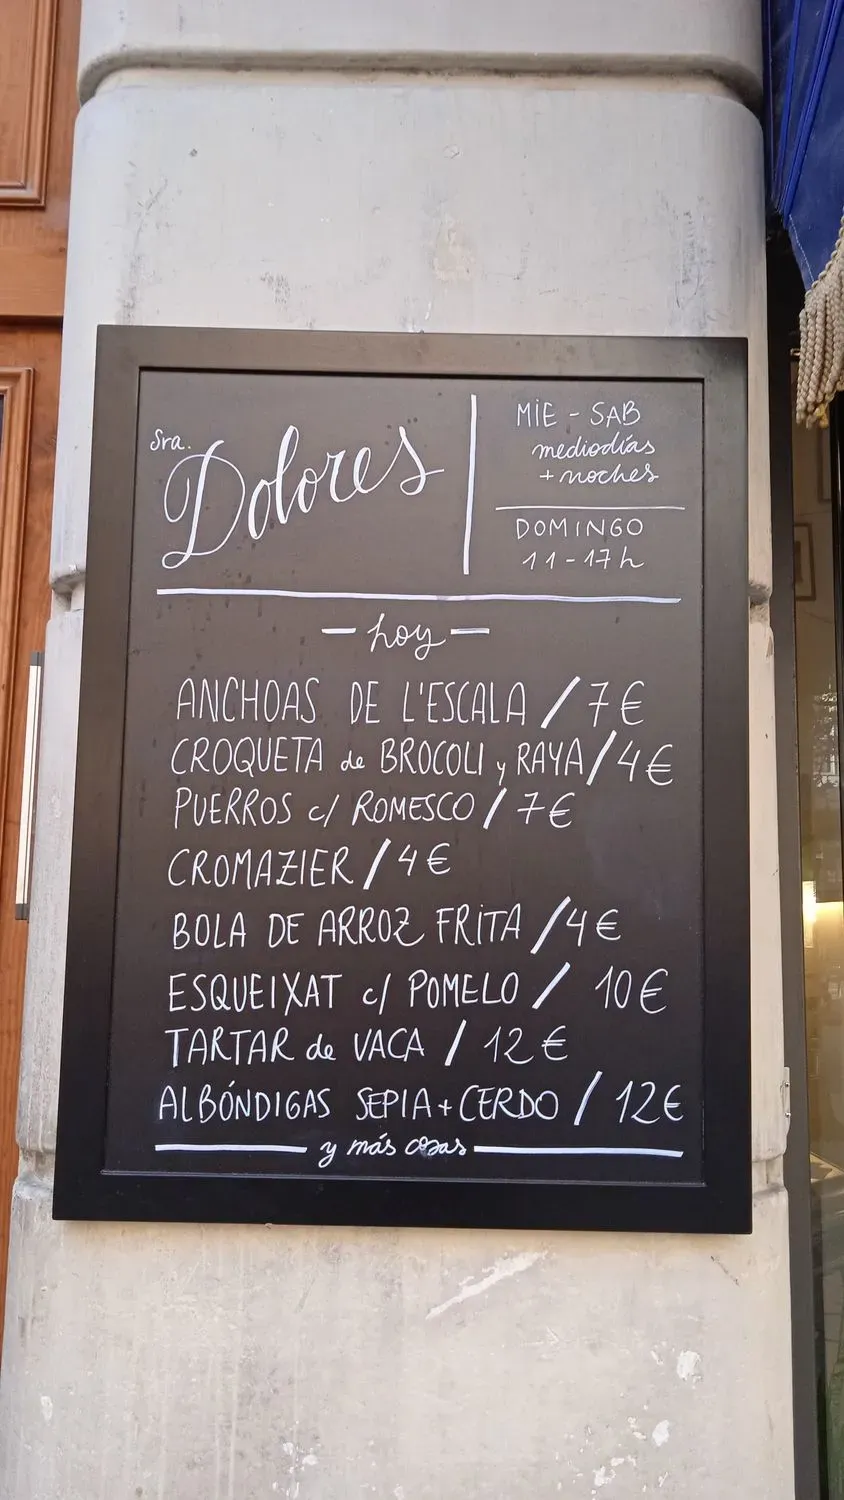 Sra.
Dolores
MiE - SAB
mediodías
+ noches
DOMINGO
11-17h
- hoy -
ANCHOAS DE L'ESCALA / 7€
CROQUETA de BROCOLI y RAYA / 4€
PUERROS c/ ROMESCO / 7€
CROMAZIER / 4€
BOLA DE ARROZ FRiTA / 4€
ESQUEIXAT c/ POMELO / 10€
TARTAR de VACA / 12€
ALBÓNDIGAS SEPIA + CERDO / 12€
y más cosas